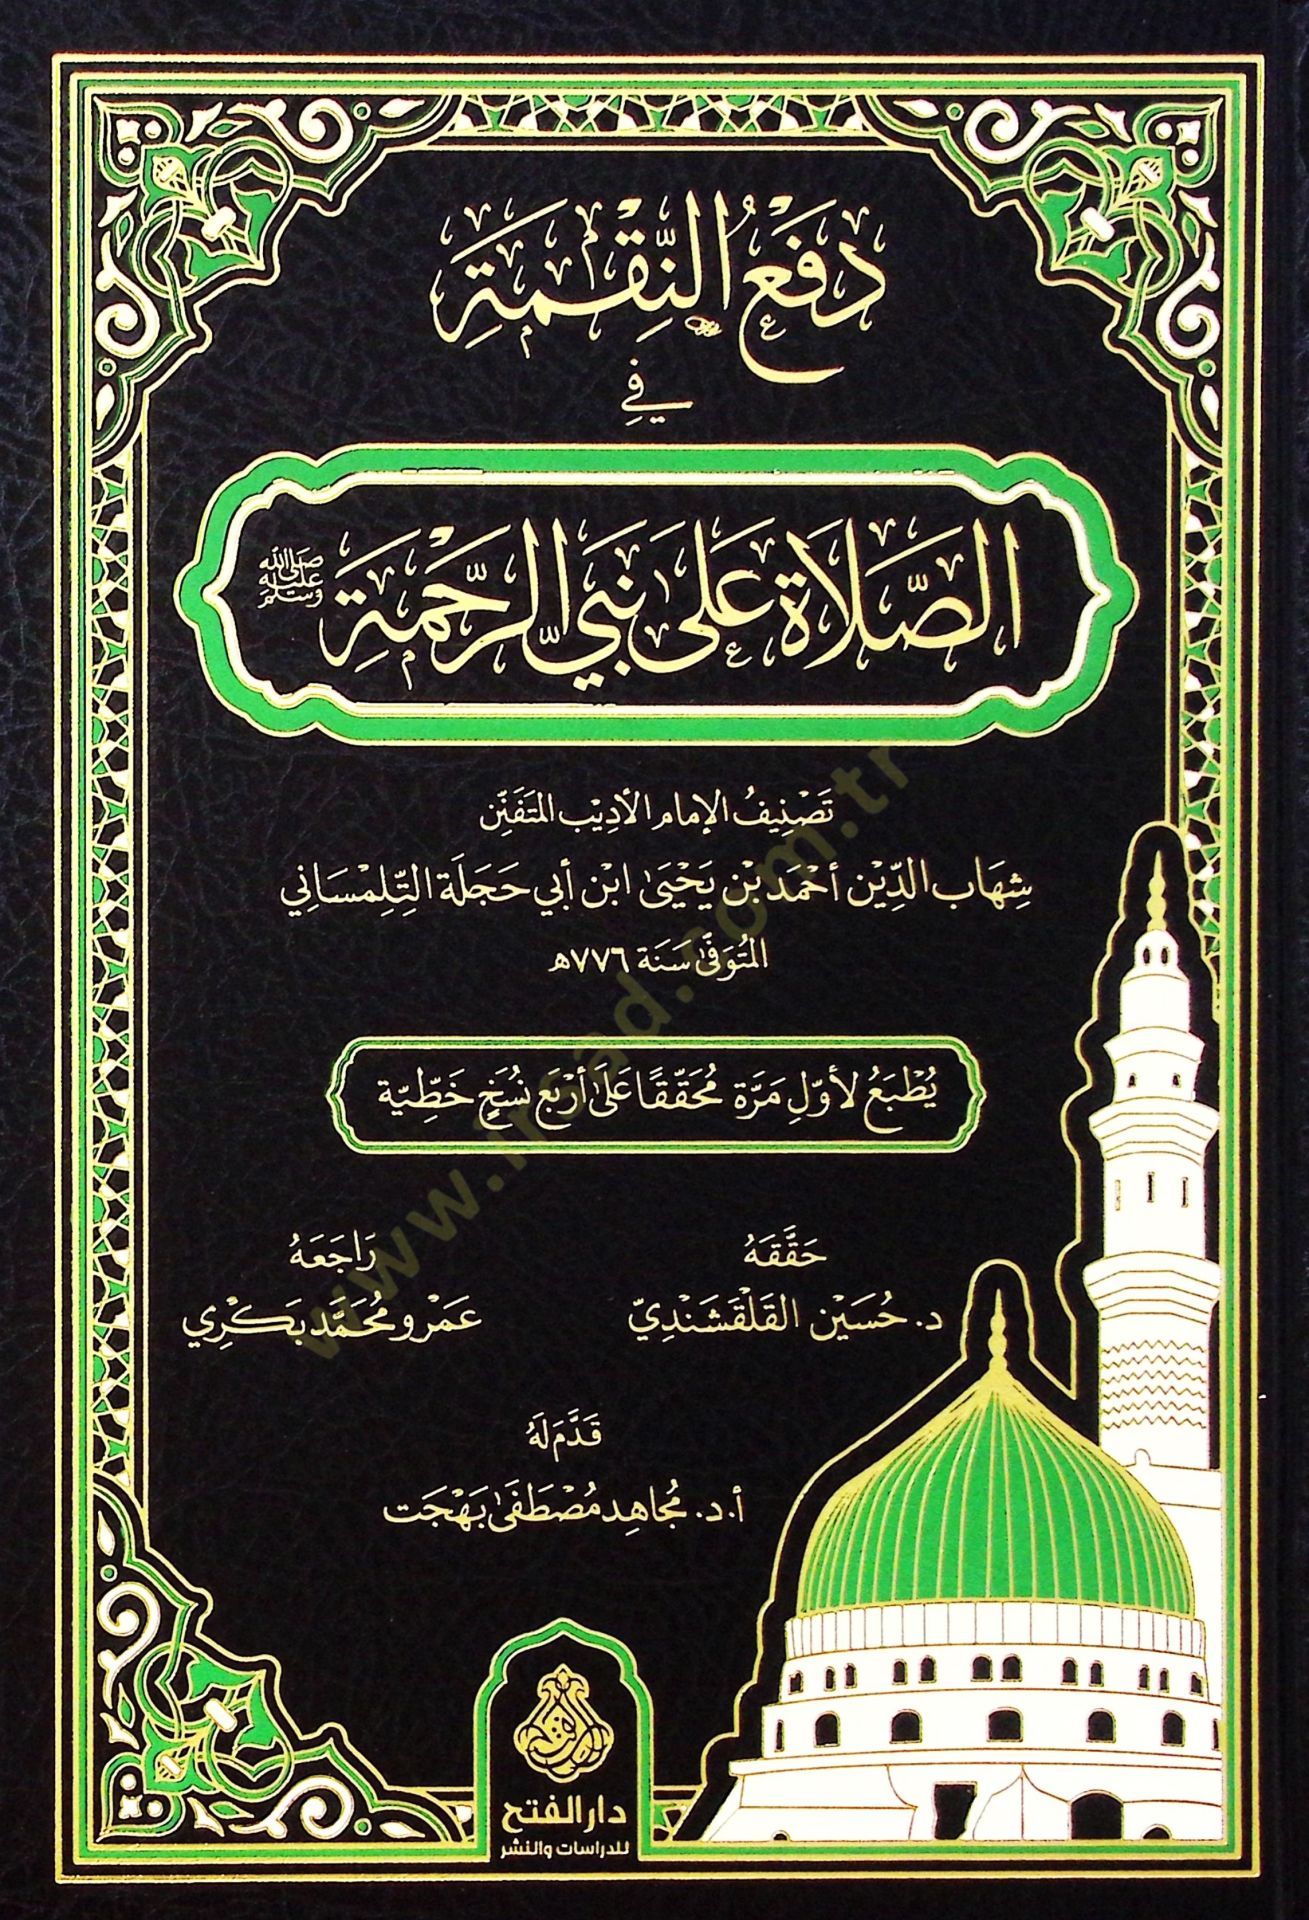 دَفْعُ النِّقْمَةِ
فِي
الصَّلَاةِ عَلَى نَبِيِّ الرَّحْمَةِ ﷺ
تَصْنِيفُ الإمام الأَدِيْبِ المتَفَنِّن
شِهَاب الدِّيْن أَحْمَد بْن يَحْيَى ابْن أَبي حَجَلَة التِّلِمْسَاني
المُتَوَفَّى سَنَة ٧٧٦هـ
يُطْبَعُ لأَوَّلِ مَرَّة مُحَقَّقًا عَلَى أَرْبَع نُسَخٍ خَطِّيَّة
حَقَّقَهُ
د. حُسَيْن القَلْقَشَنْدِيّ
رَاجَعَهُ
عَمْرو مُحَمَّد بَكْرِي
قَدَّمَ لَهُ
أ.د. مُجاهِد مُصْطَفَى بَهْجَت
دار الفتح
للدراسات والنشر
www.irsad.com.tr